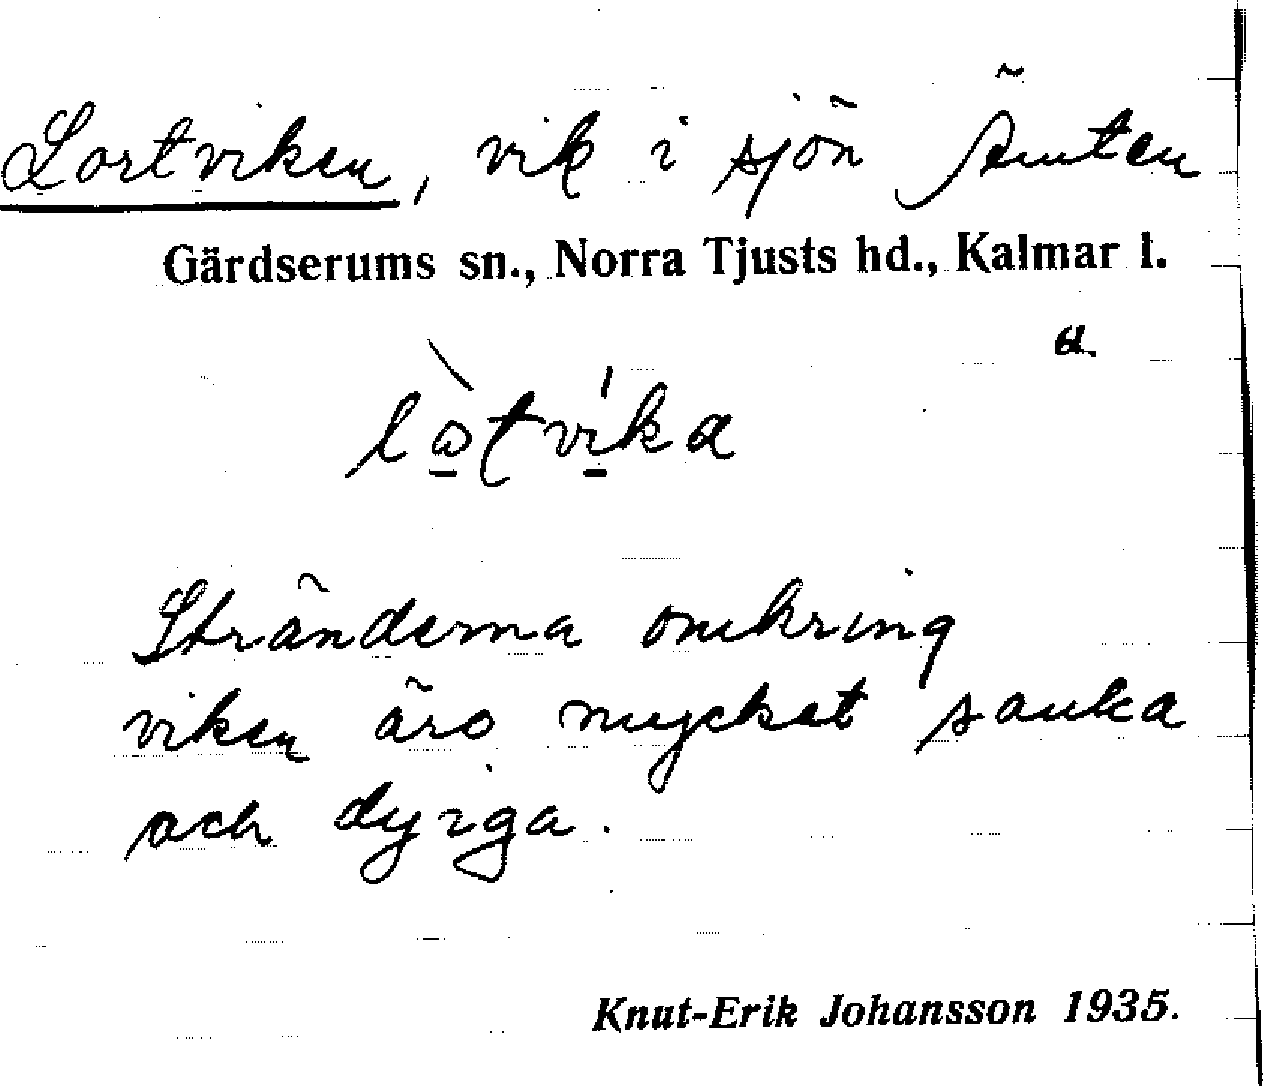 Lortviken, vik i sjön Ämten
Gärdserums sn., Norra Tjusts hd., Kalmar l.
a.
lòtvíka
Stränderna omkring
viken äro mycket sanka
och dyiga.
Knut-Erik Johansson 1935.